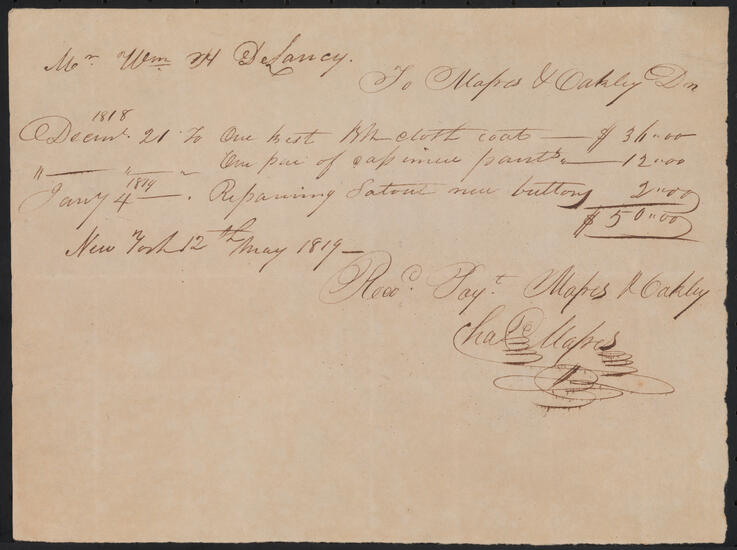 Mr. Wm H DeLancy.
To Mapes & Oakley Dr
1818
Decmr. 21 To One Best Blk cloth coat — $ 36"00
" — " — " One pair of casimere pants " — 12"00
1819
Jany 4 — " Repairing Satout new buttons 2"00
$ 50"00
New York 12th May 1819 —
Recd. Payt. Mapes & Oakley
Chas Mapes